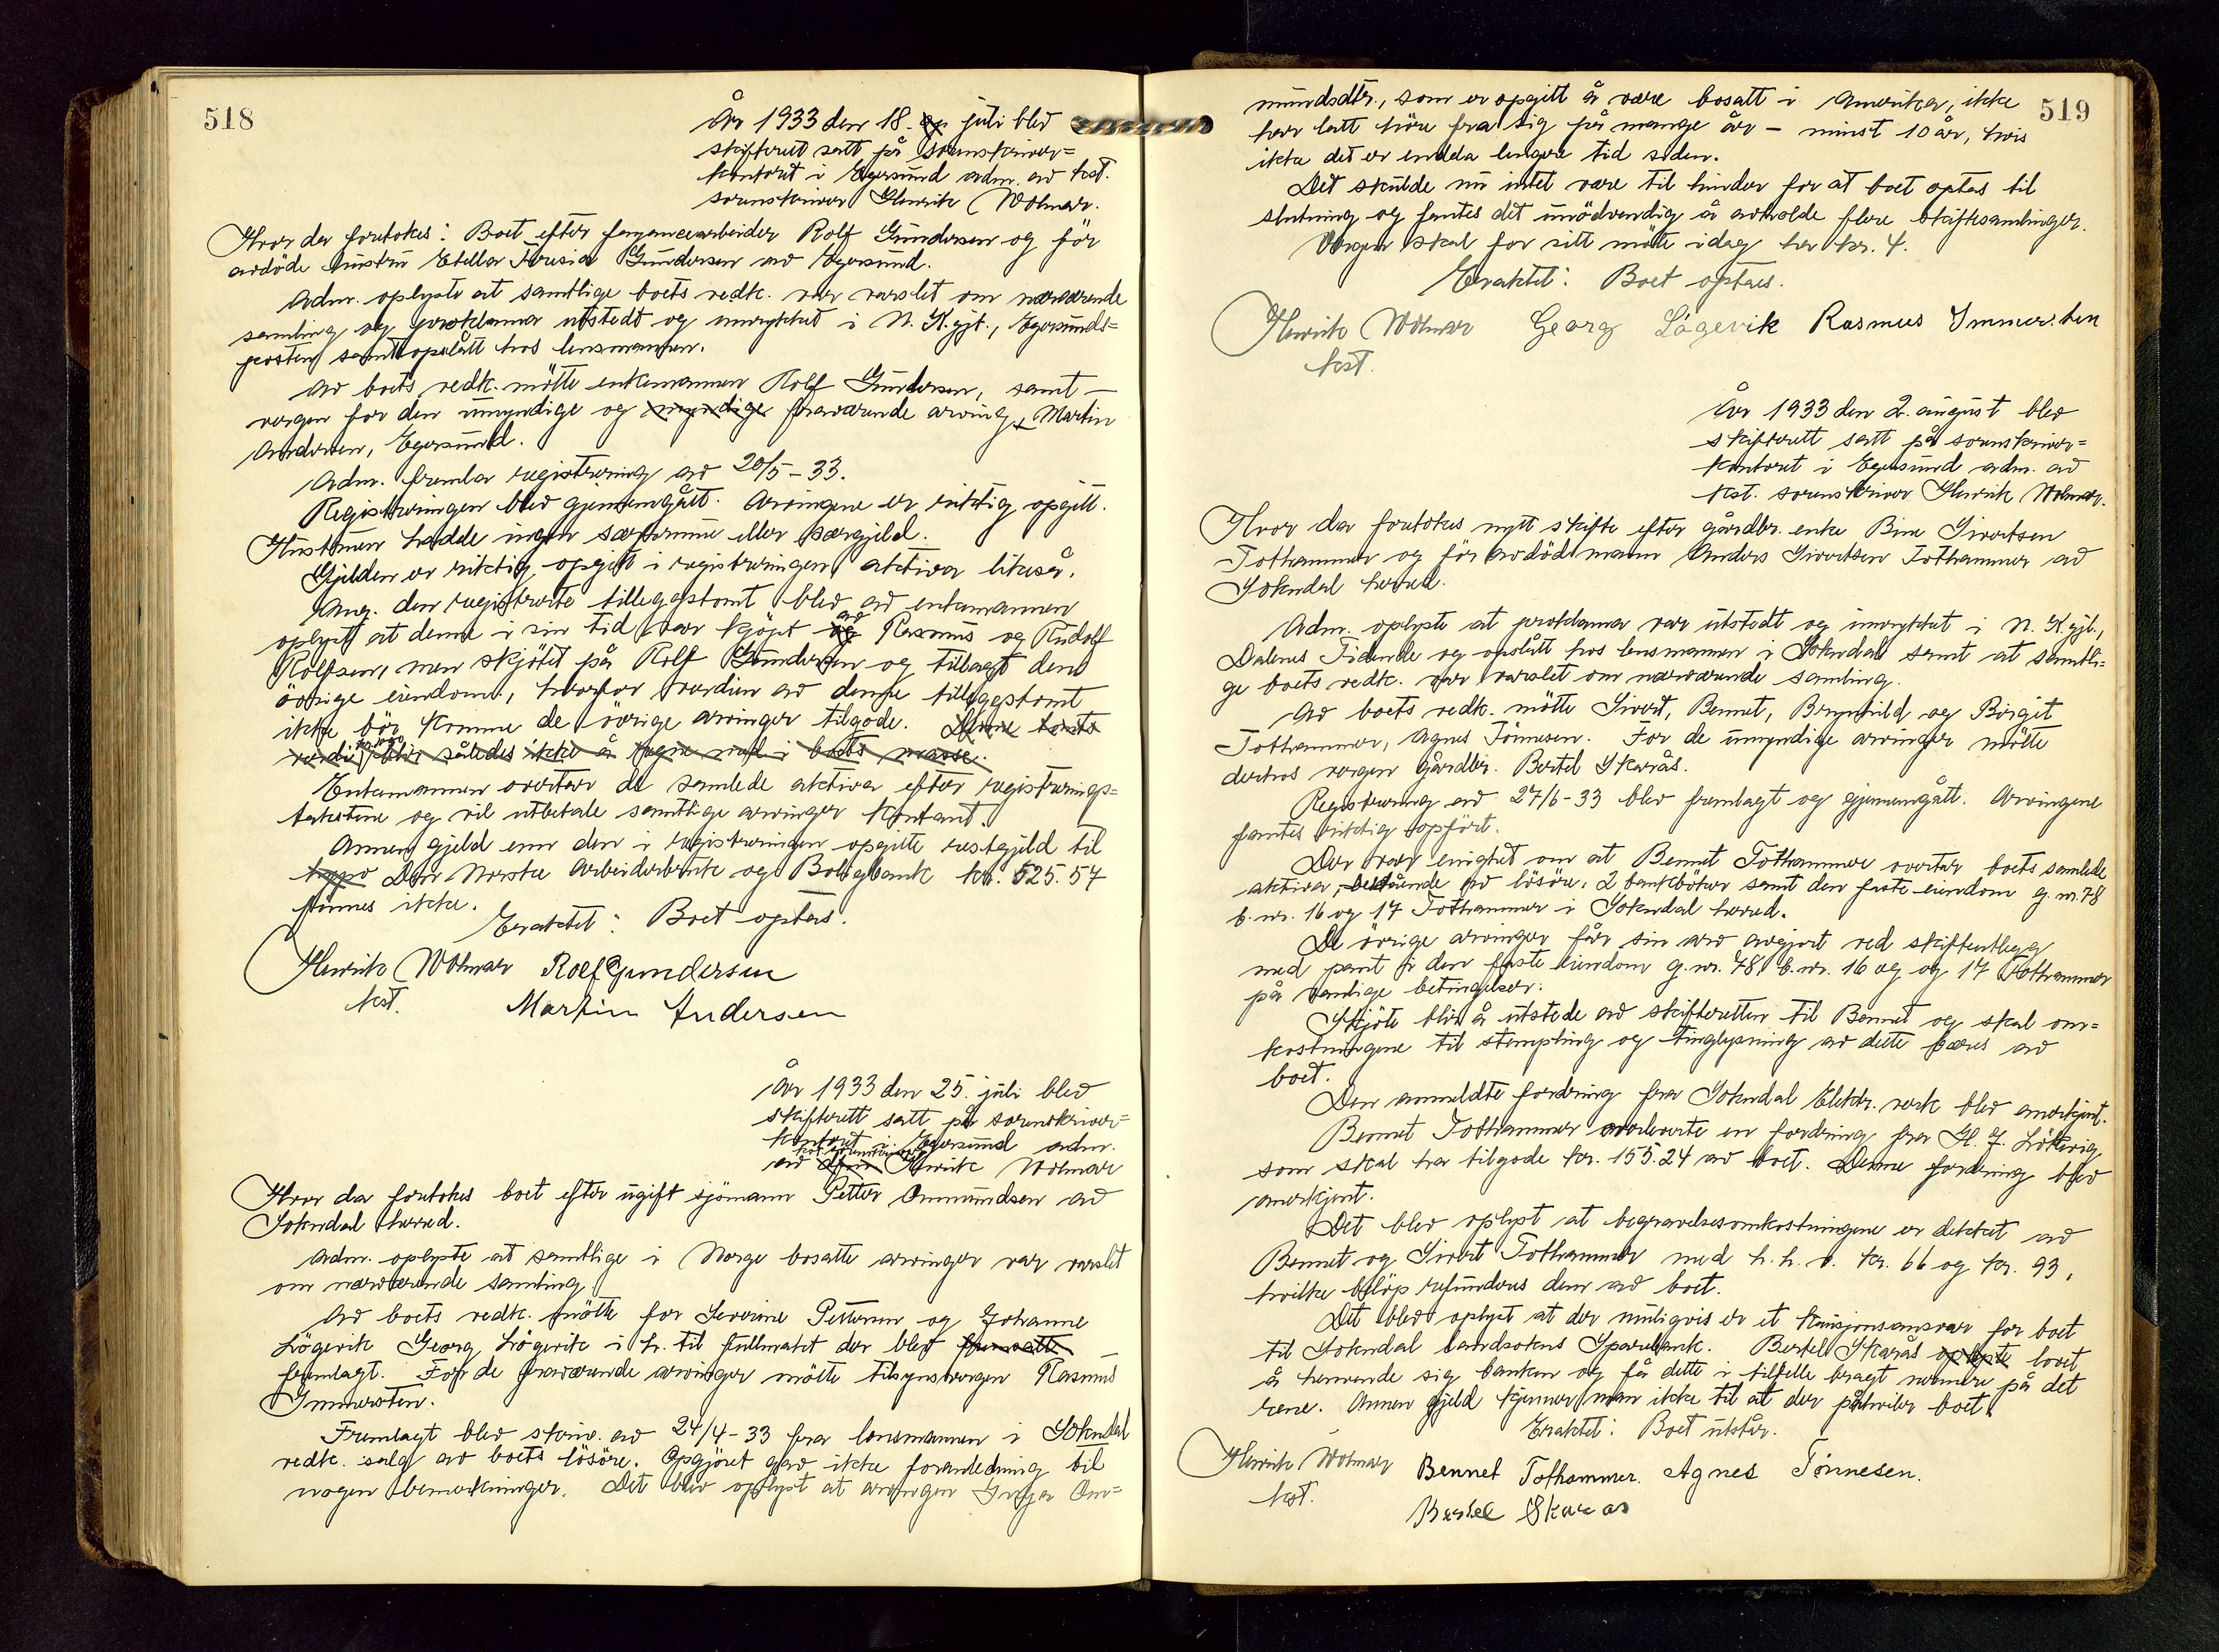 518
År 1933 den 18. juli blev
skifterett satt på sorenskriver=
kontoret i Egersund adm. av kst.
sorenskriver Henrik Wolmar.
Hvor da foretokes: Boet efter fayancearbeider Rolf Gundersen og før
avdöde hustru Etella Teresia Gundersen av Egersund.
Adm. oplyste at samtlige boets vedk. var varslet om nærværende
samling og proklama utstedt og innrykket i N. K.gjt., Egersunds=
posten samt opslått hos lensmannen.
Av boets vedk. mötte enkemannen Rolf Gundersen, samt
vergen for den umyndige og myndige fraværende arving, Martin
Andersen, Egersund.
Adm. fremla registrering av 20/5 - 33.
Registreringen blev gjennemgått. Arvingene er riktig opgitt.
Hustruen hadde ingen særformue eller særgjeld.
Gjelden er riktig opgitt i registreringen, aktiva likeså.
Ang. den registrerte tilleggstomt blev av enkemannen
oplyst at denne i sin tid var kjöpt og av Rasmus og Rudolf
Rolfsen, men skjötet på Rolf Gundersen og tillagt den
övrige eiendom, hvorfor verdien av denne tilleggstomt
ikke bör komme de övrige arvinger tilgode. Denne tomts
verdi blir således ikke å regne med i boets masse.
Enkemannen overtar de samlede aktiva efter registrerings=
takstene og vil utbetale samtlige arvinger kontant.
Annen gjeld enn den i registreringen opgitte restgjeld til
Den Norske Arbeiderbruk og Boligbank kr. 525.57
finnes ikke.
Eraktet: Boet optas.
Henrik Wolmar Rolf Gundersen
kst. Martin Andersen
År 1933 den 25. juli blev
skifterett satt på sorenskriver=
kontoret i Egersund adm.
av kst. sorenskriver Henrik Wolmar
Hvor da foretokes boet efter ugift sjömann Petter Ommundsen av
Sokndal herred.
Adm. oplyste at samtlige i Norge bosatte arvinger var varslet
om nærværende samling.
Av boets vedk. mötte for Severine Pettersen og Johanne
Lögevik Georg Lögevik i h. til fullmakt der blev fremsatte
fremlagt. For de fraværende arvinger mötte tilsynsvergen Rasmus
Immersten.
Fremlagt blev skriv. av 24/4 - 33 fra lensmannen i Sokndal
vedk. salg av boets lösöre. Opgjöret gav ikke foranledning til
nogen bemerkninger. Det blev oplyst at arvingen Inga Om=
519
mundsdtr., som er opgitt å være bosatt i Amerika, ikke
har latt höre fra sig på mange år - minst 10 år, hvis
ikke det er endda lengere tid siden.
Det skulde nu intet være til hinder for at boet optas til
slutning og fantes det unödvendig å avholde flere skiftesamlinger.
Vergen skal for sitt möte idag ha kr. 4.
Eraktet: Boet optaes.
Henrik Wolmar Georg Lögevik Rasmus Immersten
kst.
År 1933 den 2. august blev
skifterett satt på sorenskriver=
kontoret i Egersund adm. av
kst. sorenskriver Henrik Wolmar.
Hvor da foretokes nytt skifte efter gårdbr. enke Bine Sivertsen
Tothammer og för avdöd mann Anders Sivertsen Tothammer av
Sokndal herred.
Adm. oplyste at proklama var utstedt og innrykket i N. K.gjt.,
Dalenes Tidende og opslått hos lensmannen i Sokndal samt at samtli=
ge boets vedk. var varslet om nærværende samling.
Av boets vedk. mötte Sivert, Bennet, Brynhild og Birgit
Tothammer, Agnes Tönnesen. For de umyndige arvinger mötte
derhos vergen gårdbr. Bertel Skarås.
Registrering av 27/6 - 33 blev fremlagt og gjennemgått. Arvingene
fantes riktig opfört.
Der var enighet om at Bennet Tothammer overtar boets samlede
aktiva, bestående av lösöre, 2 bankböker samt den faste eiendom g. nr. 78
b. nr. 16 og 17 Tothammer i Sokndal herred.
De övrige arvinger får sin arv avgjort ved skifteutlegg
med pant i den faste eiendom g. nr. 78, b. nr. 16 og og 17 Tothammer
på vanlige betingelser.
Skjöte blir å utstede av skifteretten til Bennet og skal om=
kostningene til stempling og tinglysning av dette bæres av
boet.
Den anmeldte fordring fra Sokndal Elektr. verk blev anerkjent.
Bennet Tothammer overleverte en fordring fra H. J. Lökkevig
som skal ha tilgode kr. 155.24 av boet. Denne fordring blev
anerkjent.
Det blev oplyst at begravelsesomkostningene er dekket av
Bennet og Sivert Tothammer med h. h. v. kr. 66 og kr. 93,
hvilke beløp refunderes dem av boet.
Det blev oplyst at der muligvis er et kausjonsansvar for boet
til Sokndal landsokns Sparebank. Bertel Skarås oplyste lovet
å henvende sig banken og få dette i tilfelle bragt nærmere på det
rene. Annen gjeld kjenner man ikke til at der påhviler boet.
Eraktet: Boet utstår.
Henrik Wolmar Bennet Tothammer. Agnes Tönnesen.
kst. Bertel Skaras